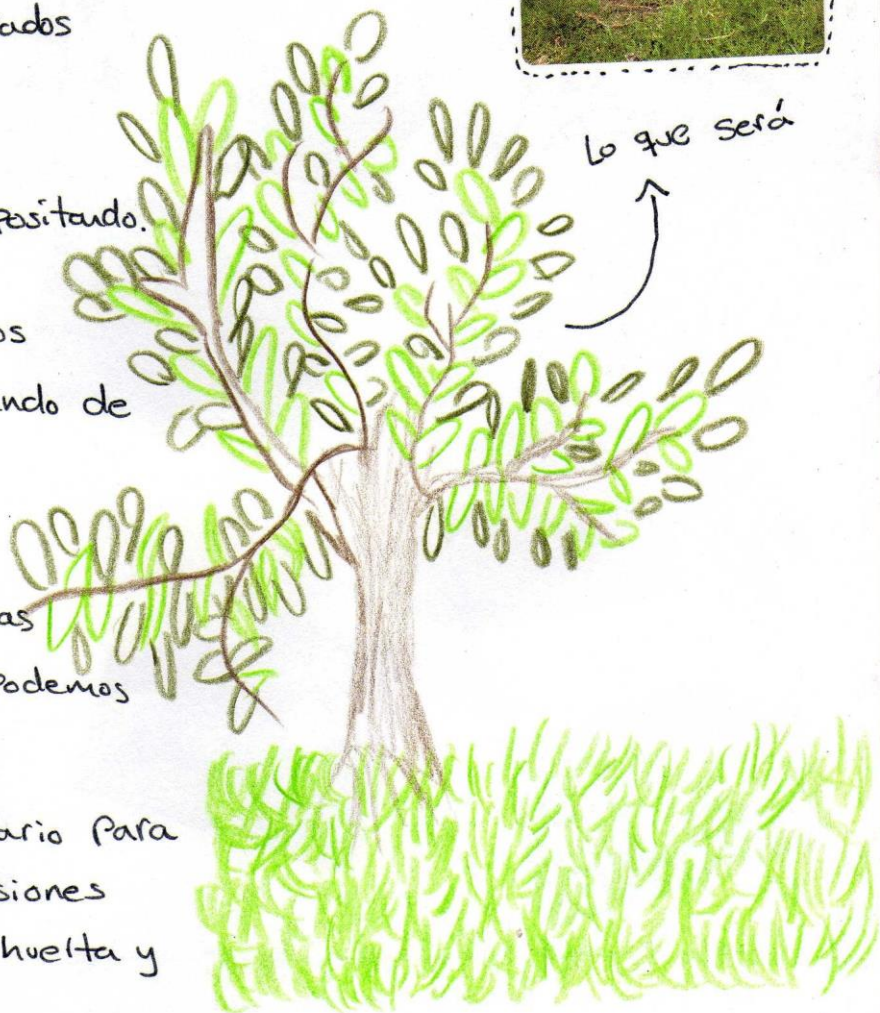 ados
Lo que será
positando.
os
ndo de
as
Podemos
ario Para
siones
huelta y